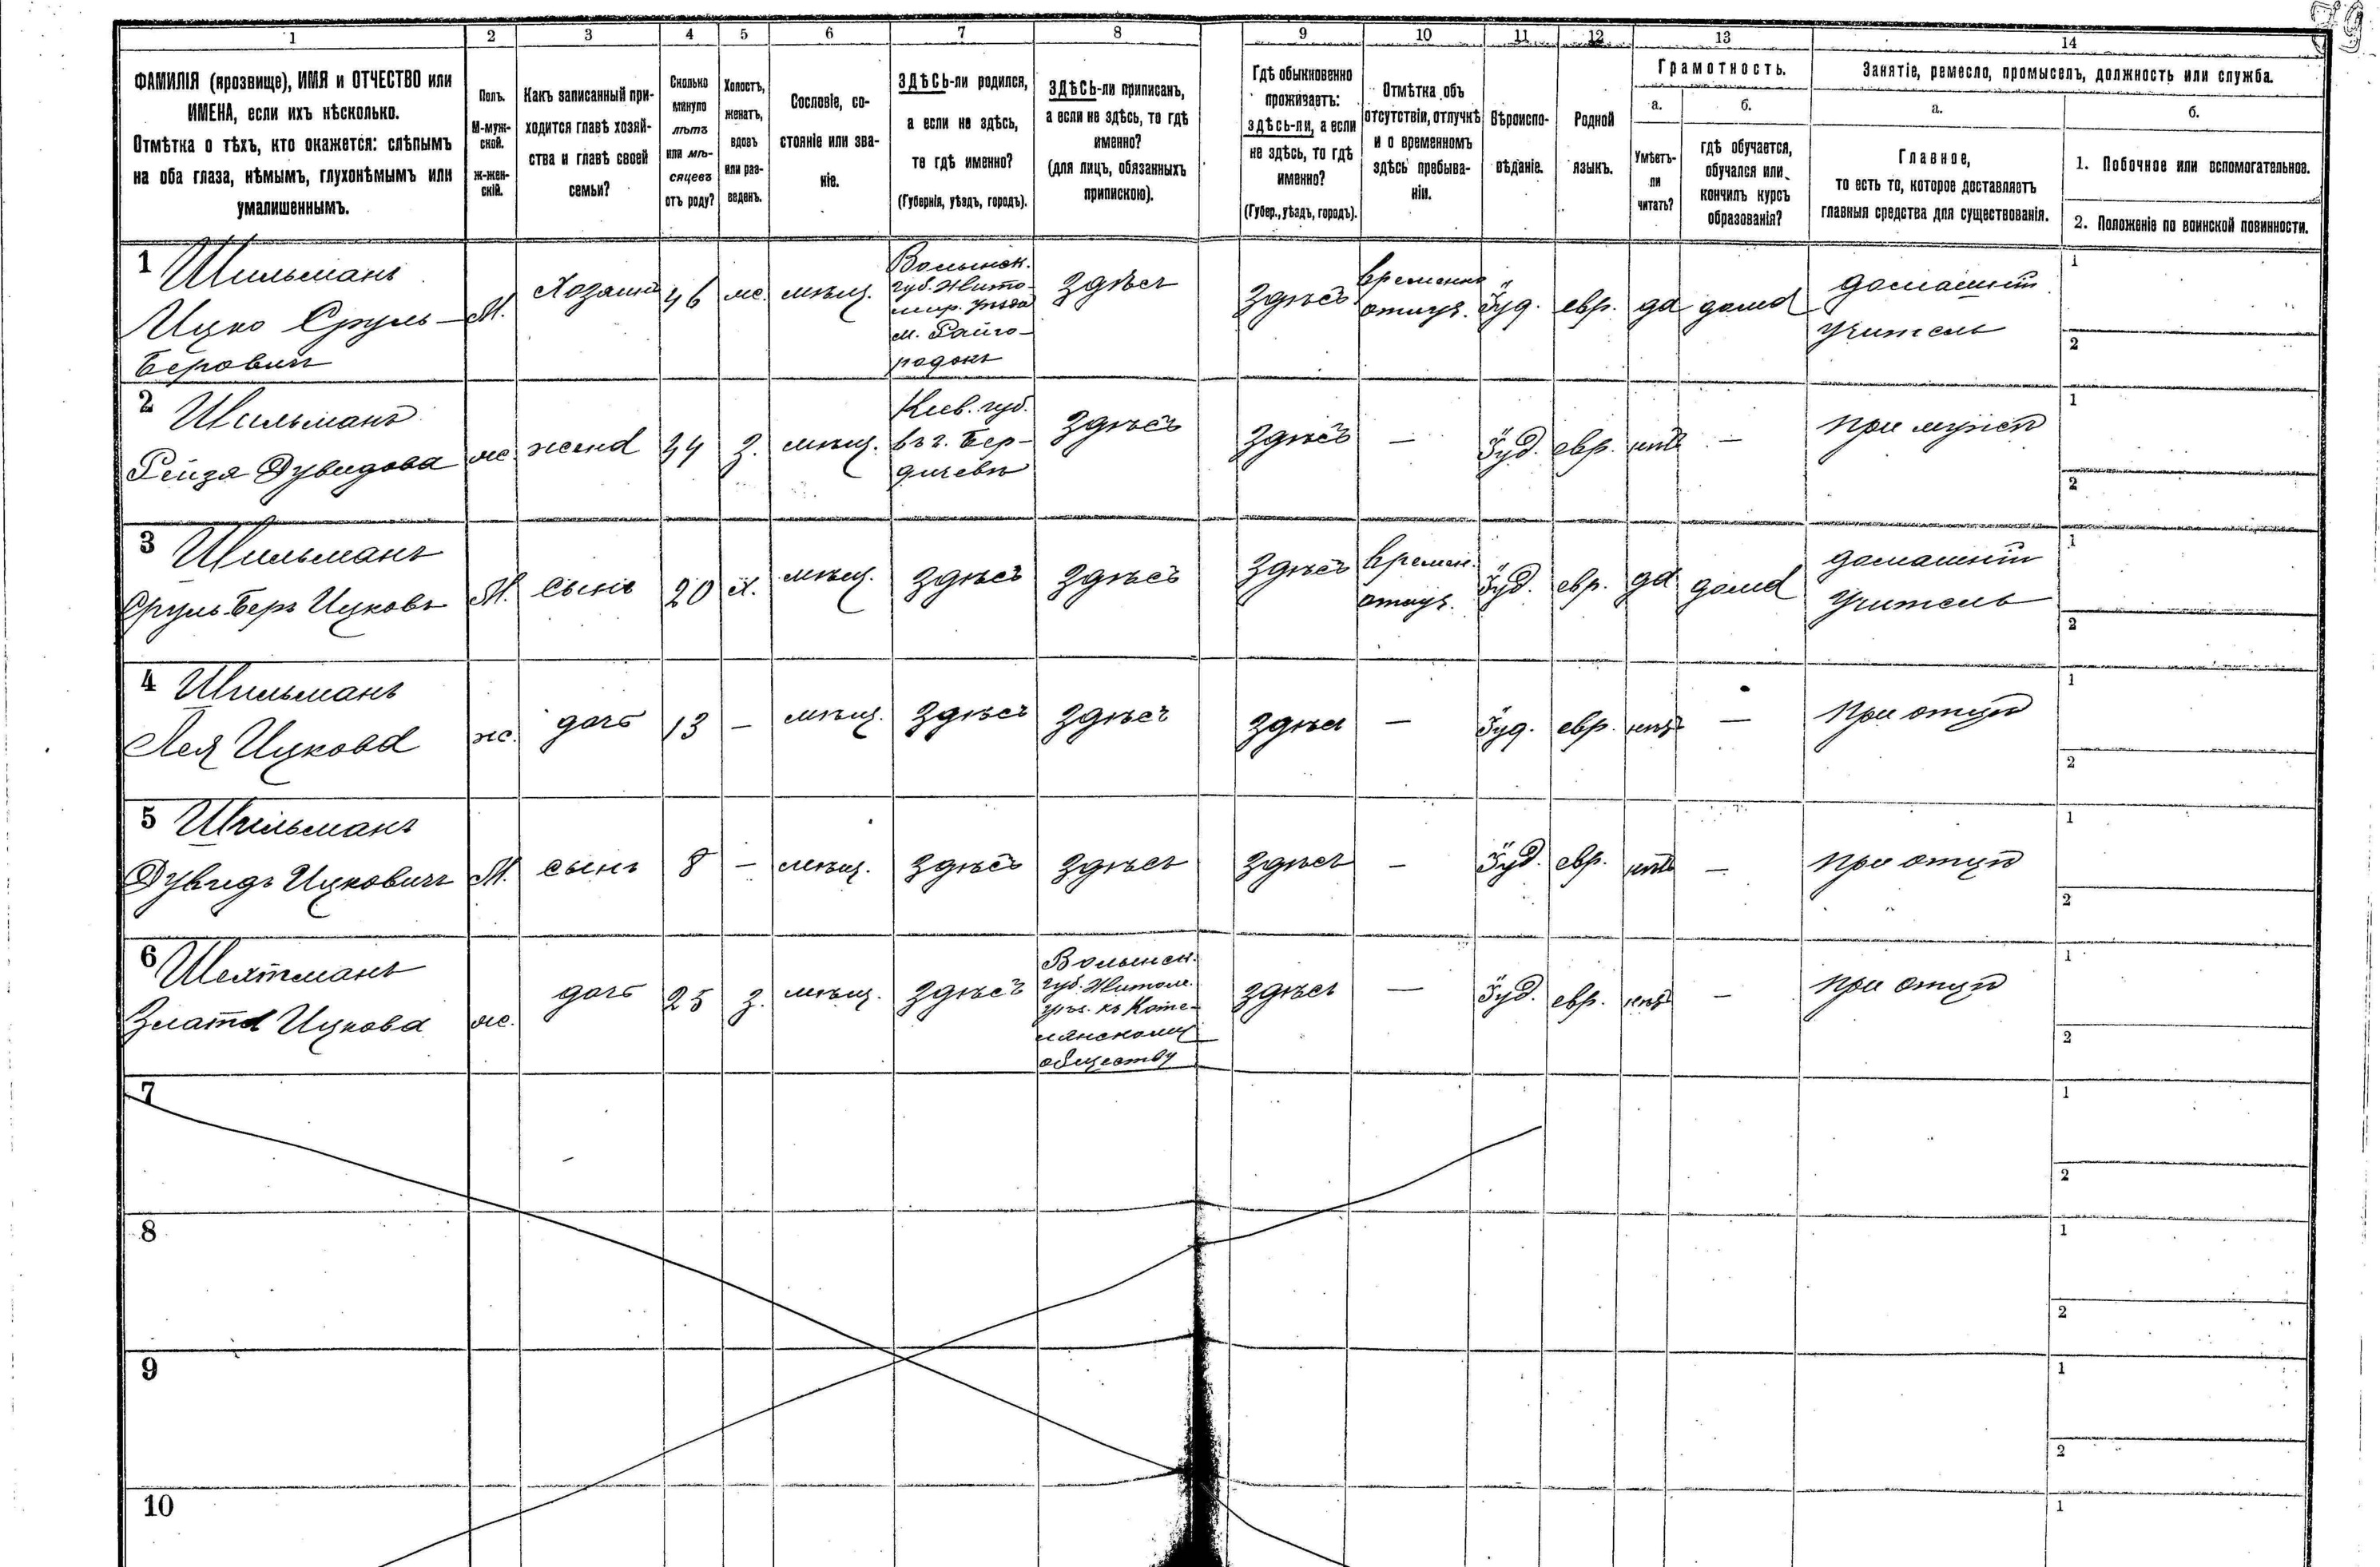 79
1 2 3 4 5 6 7 8 9 10 11 12 13 14
ФАМИЛІЯ (прозвище), ИМЯ и ОТЧЕСТВО или
ИМЕНА, если ихъ нѣсколько.
Отмѣтка о тѣхъ, кто окажется: слѣпымъ
на оба глаза, нѣмымъ, глухонѣмымъ или
умалишеннымъ.
Полъ.
М-муж-
ской.
ж-жен-
скій.
Какъ записанный при-
ходится главѣ хозяй-
ства и главѣ своей
семьи?
Сколько
минуло
лѣтъ
или мѣ-
сяцевъ
отъ роду?
Холостъ,
женатъ,
вдовъ
или раз-
веденъ.
Сословіе, со-
стояніе или зва-
ніе.
ЗДѢСЬ-ли родился,
а если не здѣсь,
то гдѣ именно?
(Губернія, уѣздъ, городъ).
ЗДѢСЬ-ли приписанъ,
а если не здѣсь, то гдѣ
именно?
(для лицъ, обязанныхъ
припискою).
Гдѣ обыкновенно
проживаетъ:
здѣсь-ли, а если
не здѣсь, то гдѣ
именно?
(Губер., уѣздъ, городъ).
Отмѣтка объ
отсутствіи, отлучкѣ
и о временномъ
здѣсь пребыва-
ніи.
Вѣроиспо-
вѣданіе.
Родной
языкъ.
Грамотность.
а.
Умѣетъ-
ли
читать?
б.
гдѣ обучается,
обучался или
кончилъ курсъ
образованія?
Занятіе, ремесло, промыселъ, должность или служба.
а.
Главное,
то есть то, которое доставляетъ
главныя средства для существованія.
б.
1. Побочное или вспомогательное.
2. Положеніе по воинской повинности.
1 Шильманъ
Ицко Сруль-
Беровичъ
М.
Хозяинъ
46
ж.
мѣщ.
Волынск.
губ. Жито-
мир. уѣзда
м. Райго-
родокъ
здѣсь
здѣсь
временно
отлуч.
Іуд.
евр.
да
дома
домашній
учитель
1
2
2 Шильманъ
Рейзя Дувидова
ж.
жена
44
з.
мѣщ.
Кіев. губ.
въ г. Бер-
дичевѣ
здѣсь
здѣсь
—
Іуд.
евр.
нѣтъ
—
при мужѣ
1
2
3 Шильманъ
Сруль-Беръ Ицковъ
М.
сынъ
20
х.
мѣщ.
здѣсь
здѣсь
здѣсь
времен.
отлуч.
Іуд.
евр.
да
дома
домашній
учитель
1
2
4 Шильманъ
Лея Ицкова
ж.
дочь
13
—
мѣщ.
здѣсь
здѣсь
здѣсь
—
Іуд.
евр.
нѣтъ
—
при отцѣ
1
2
5 Шильманъ
Дувидъ Ицковичъ
М.
сынъ
8
—
мѣщ.
здѣсь
здѣсь
здѣсь
—
Іуд.
евр.
нѣтъ
—
при отцѣ
1
2
6 Шехтманъ
Злата Ицкова
ж.
дочь
25
з.
мѣщ.
здѣсь
Волынск.
губ. Житом.
къ
обществу
здѣсь
—
Іуд.
евр.
нѣтъ
—
при отцѣ
1
2
7
1
2
8
1
2
9
1
2
10
1